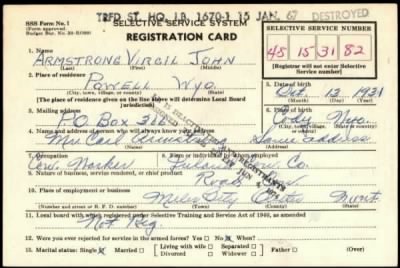 TRFD ST. HQ. I.B. 1670-1 15 JAN. 67 DESTROYED
SSS Form No. 1
(Form approved.
SELECTIVE SERVICE SYSTEM
REGISTRATION CARD
SELECTIVE SERVICE NUMBER
48 15 31 82
[Registrar will not enter Selective
Service number]
1. Name
ARMSTRONG VIRGIL JOHN
2. Place of residence
Powell Wyo
(City, town, village, or county) (State)
(The place of residence given on the line above will determine Local Board
jurisdiction)
5. Date of birth
Oct. 13 1931
(Month) (Day) (Year)
6. Place of birth
Cody, Wyo.
(City, town, or county) (State or country)
3. Mailing address
PO Box 316
4. Name and address of person who will always know your address
Mr. Carl Armstrong Same address
7. Occupation
Con. Worker
8. Firm or individual by whom employed
Const. Co.
9. Nature of business, service rendered, or chief product
Road
10. Place of employment or business
Miles City Custer Mont.
(Number and street or R. F. D. number) (City, town, or village) (County) (State)
11. Local board with which registered under Selective Training and Service Act of 1940, as amended
Not Reg
12. Were you ever rejected for service in the armed forces? Yes No
13. Marital status: Single Married Living with wife Separated Divorced Widower Father (over)